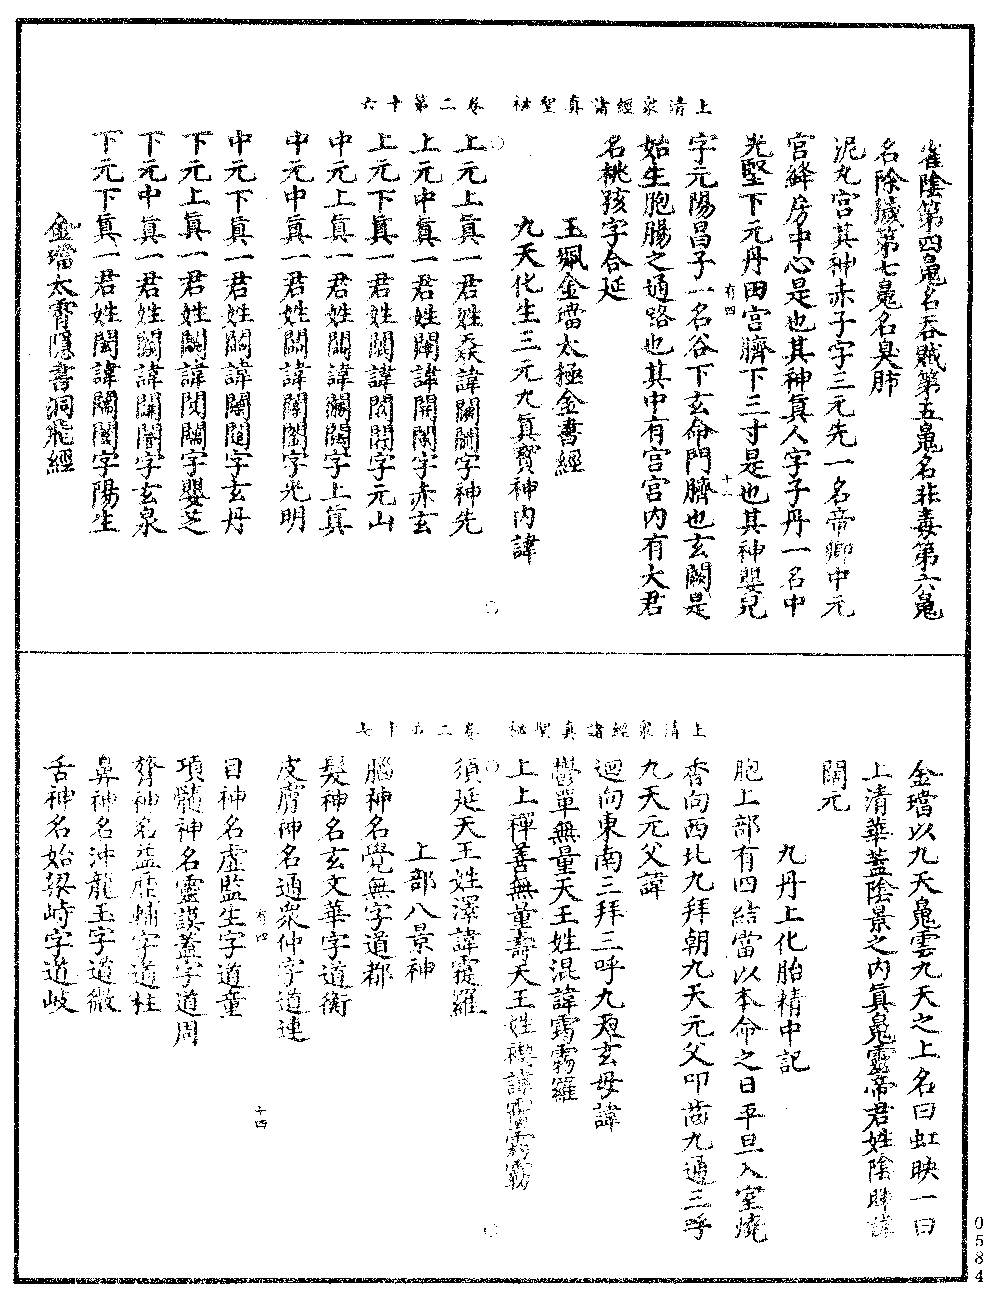 上清衆經諸真聖祕 卷二第十六
雀陰第四䰟名吞賊第五䰟名非毒第六䰟
名除䘕第七䰟名臭肺
泥丸宮其神赤子字三元先一名帝卿中元
宮絳房中心是也其神真人字子丹一名中
光堅下元丹田宮臍下三寸是也其神嬰兒
有四
十一
字元陽昌子一名谷下玄命門臍也玄闕是
始生胞腸之通路也其中有宮宮内有大君
名桃孩字合延
玉珮金璫太極金書經
九天化生三元九真寳神内諱
上元上真一君姓諱字神先
上元中真一君姓諱字赤玄
上元下真一君姓諱字元山
中元上真一君姓諱字上真
中元中真一君姓諱字光明
中元下真一君姓諱字玄丹
下元上真一君姓諱字嬰芝
下元中真一君姓諱字玄泉
下元下真一君姓諱字陽生
金璫太霄隱書洞飛經
上清衆經諸真聖祕 卷二第十七
金璫以九天䰟雲九天之上名曰虹映一曰
上清華蓋陰景之内真䰟靈帝君姓陰諱
闓元
九丹上化胎精中記
胞上部有四結當以本命之日平旦入室燒
香向西北九拜朝九天元父叩齒九通三呼
九天元父諱
迴向東南三拜三呼九天玄母諱
鬱單無量天王姓混諱霱羅
上上禪善無量壽天王姓禊諱
須延天王姓澤諱霮羅
上部八景神
腦神名覺無字道都
髮神名玄文華字道衡
皮膚神名通衆仲字道連
有四
十四
目神名虛監生字道童
項髓神名靈謨蓋字道周
膂神名益歷輔字道柱
鼻神名沖龍玉字道微
舌神名始梁峙字道岐
0584